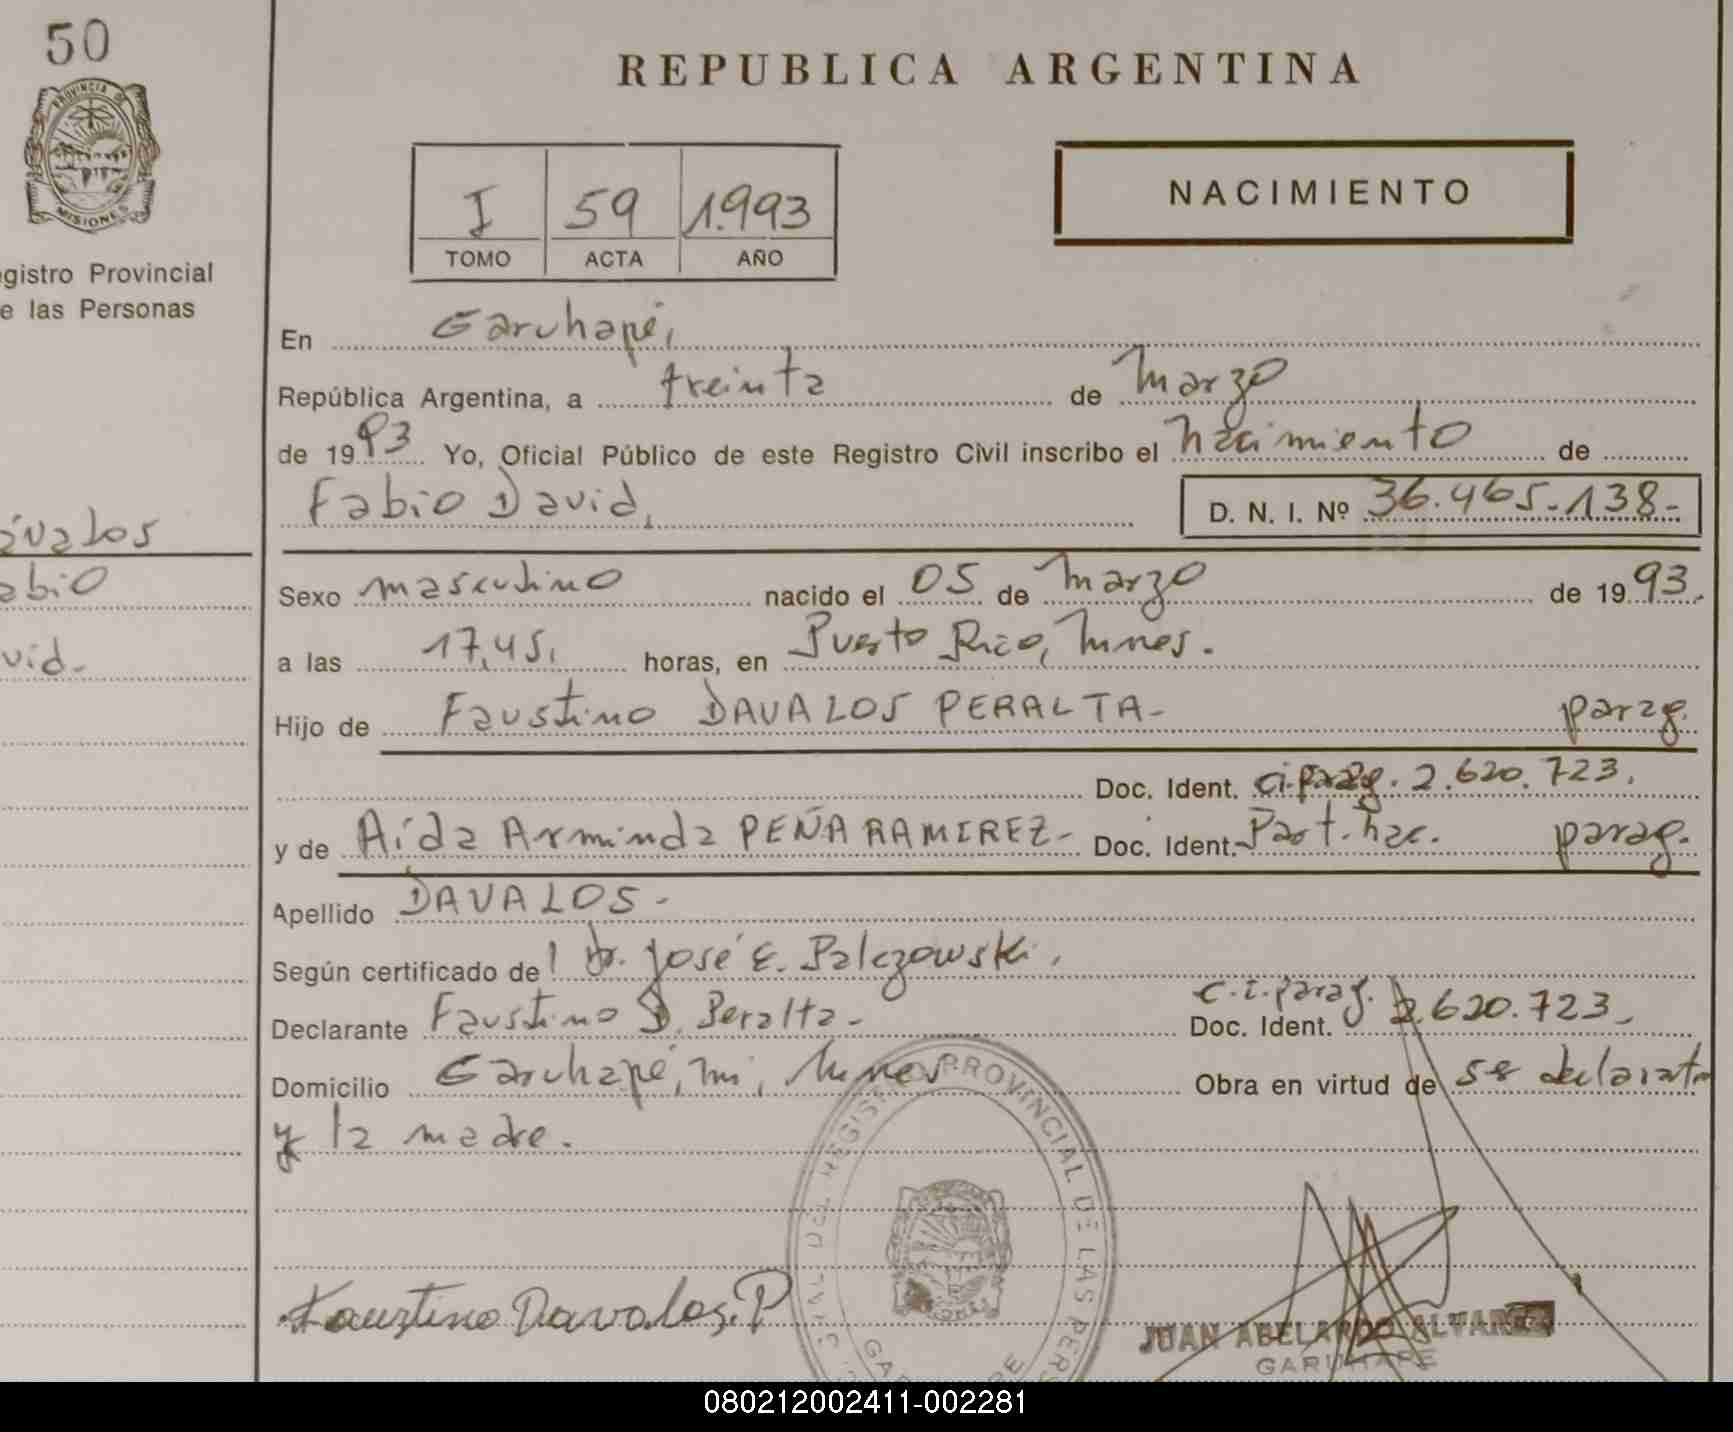 50
PROVINCIA DE
MISIONES
gistro Provincial
e las Personas
ávalos
abio
vid.
REPUBLICA ARGENTINA
I 59 1.993
TOMO ACTA AÑO
NACIMIENTO
En Garuhapé,
República Argentina, a treinta de Marzo
de 1993 Yo, Oficial Público de este Registro Civil inscribo el nacimiento de
Fabio David, D. N. I. Nº 36.465.138-
Sexo masculino nacido el 05 de Marzo de 1993.
a las 17,45, horas, en Puerto Rico, Mnes.
Hijo de Faustino DAVALOS PERALTA- parag.
Doc. Ident. ci.parag. 2.620.723.
y de Aída Arminda PEÑA RAMIREZ- Doc. Ident. Part. nac. parag.
Apellido DAVALOS-
Según certificado del Dr. José E. Palczowski.
Declarante Faustino D. Peralta- c.i.parag. Doc. Ident. 2.620.723-
Domicilio Garuhapé, mi, Mnes Obra en virtud de ser declarante
y la madre.
DEL REGISTRO PROVINCIAL DE LAS PERS
Faustino Davalos.P
JUAN ABELARDO ALVAREZ
GARUHAPE
080212002411-002281